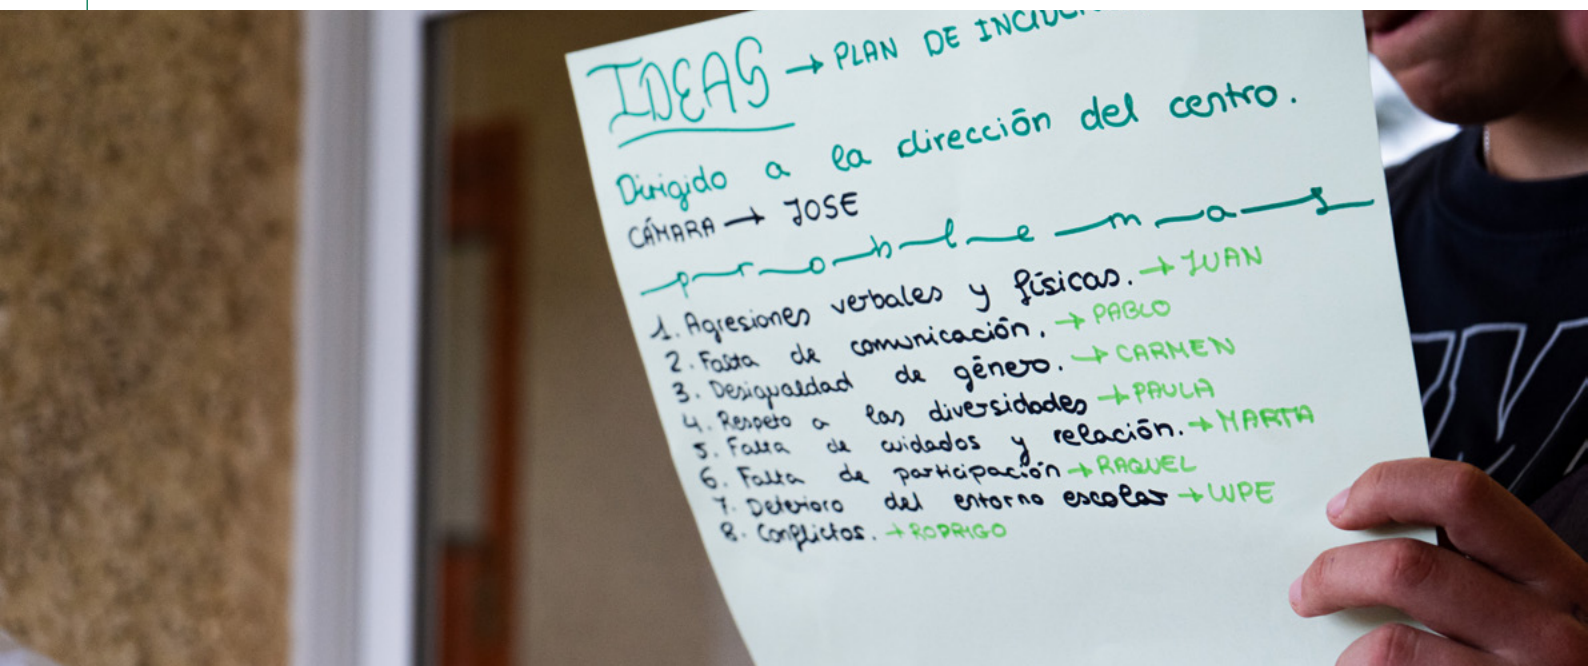 IDEAS → PLAN DE
Dirigido a la dirección del centro.
CÁMARA → JOSE
problemas
1. Agresiones verbales y físicas. → JUAN
2. Falta de comunicación. → PABLO
3. Desigualdad de género. → CARMEN
4. Respeto a las diversidades → PAULA
5. Falta de cuidados y relación. → MARTA
6. Falta de participación → RAQUEL
7. Deterioro del entorno escolar → LUPE
8. Conflictos. → RODRIGO